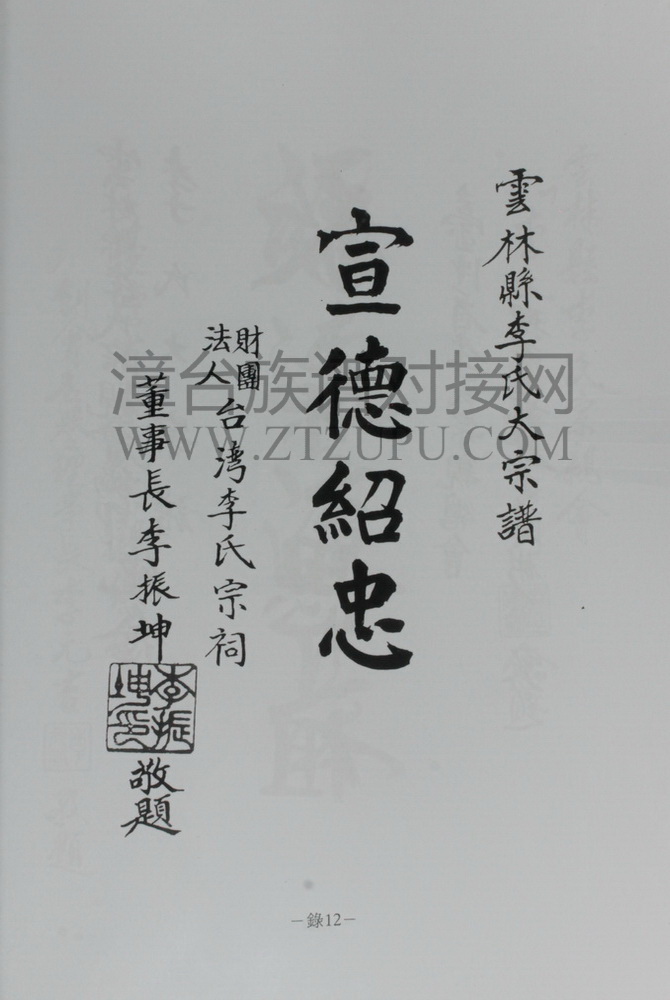 雲林縣李氏大宗譜
宣德紹忠
財團法人台湾李氏宗祠
董事長李振坤
李振坤印
敬題
漳台族谱对接网
WWW.ZTZUPU.COM
－錄12－